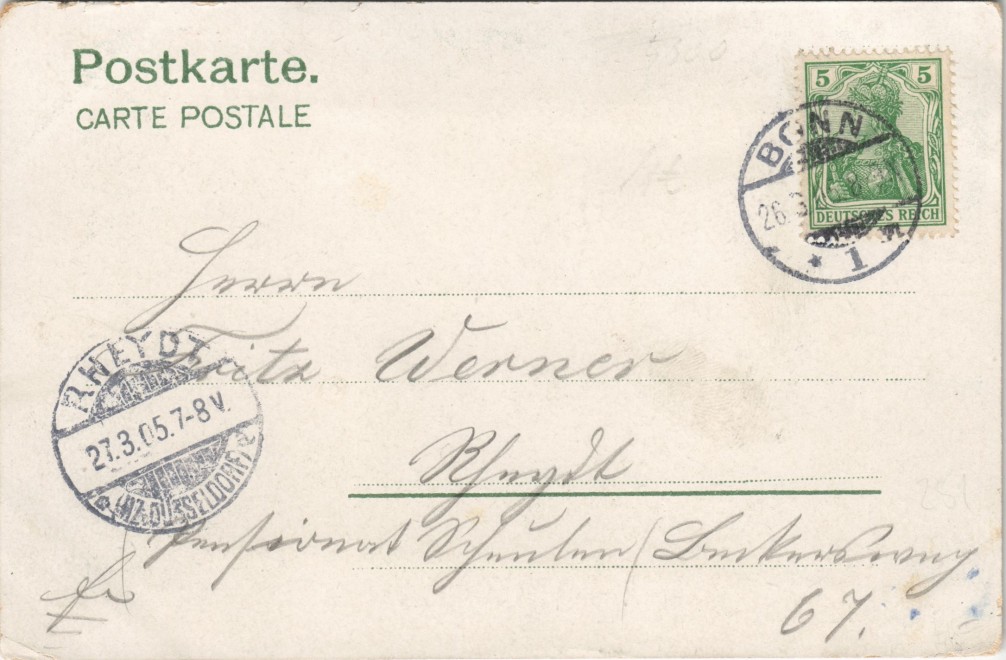 Postkarte.
CARTE POSTALE
5 5
DEUTSCHES REICH
BONN
26.3.
* 1
Herrn
Fritz Werner
RHEYDT
27.3.05.7-8V.
(BZ. DÜSSELDORF)
Rheydt
Pensionat Scheulen (
67.
281